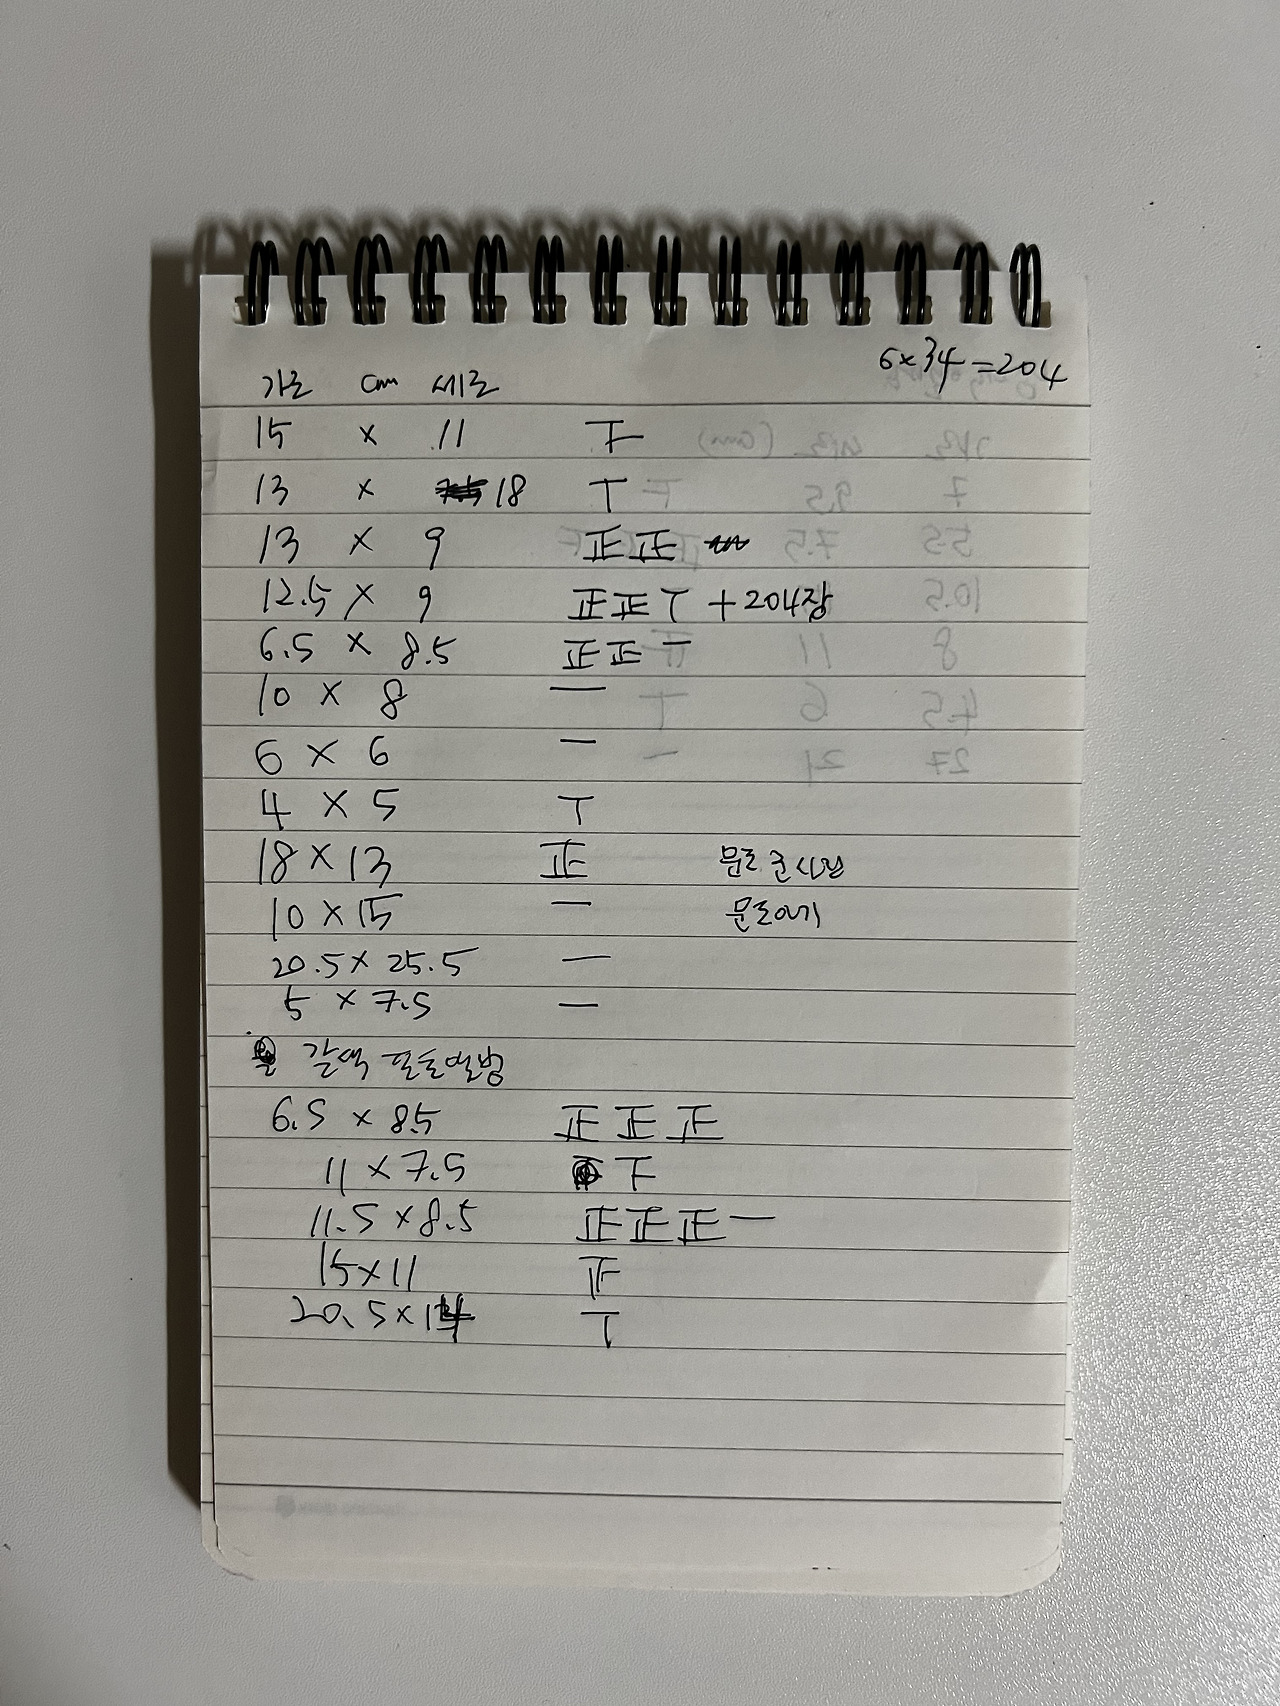 6×34=204
가로 cm 세로
15 × 11 下
13 × 18 丅
13 × 9 正正
12.5 × 9 正正丅 +204장
6.5 × 8.5 正正丅
10 × 8 一
6 × 6 一
4 × 5 丅
18 × 13 正
10 × 15 一
20.5 × 25.5 一
5 × 7.5 一
갈색 민들앨범
6.5 × 8.5 正正正
11 × 7.5 下
11.5 × 8.5 正正正一
15×11 正
20.5×14 丅